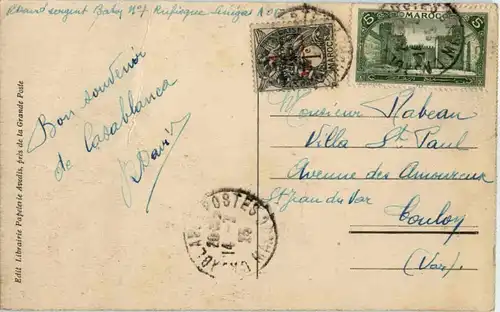 Rufisque Sénégal A O F
MAROC
5
1
Bon souvenir
de Casablanca
Monsieur Rabeau
Villa St Paul
Avenue des Amoureux
St Jean du Var
Toulon
(Var)
POSTES
14-
35
Edit Librairie Papeterie Avedis, près de la Grande Poste